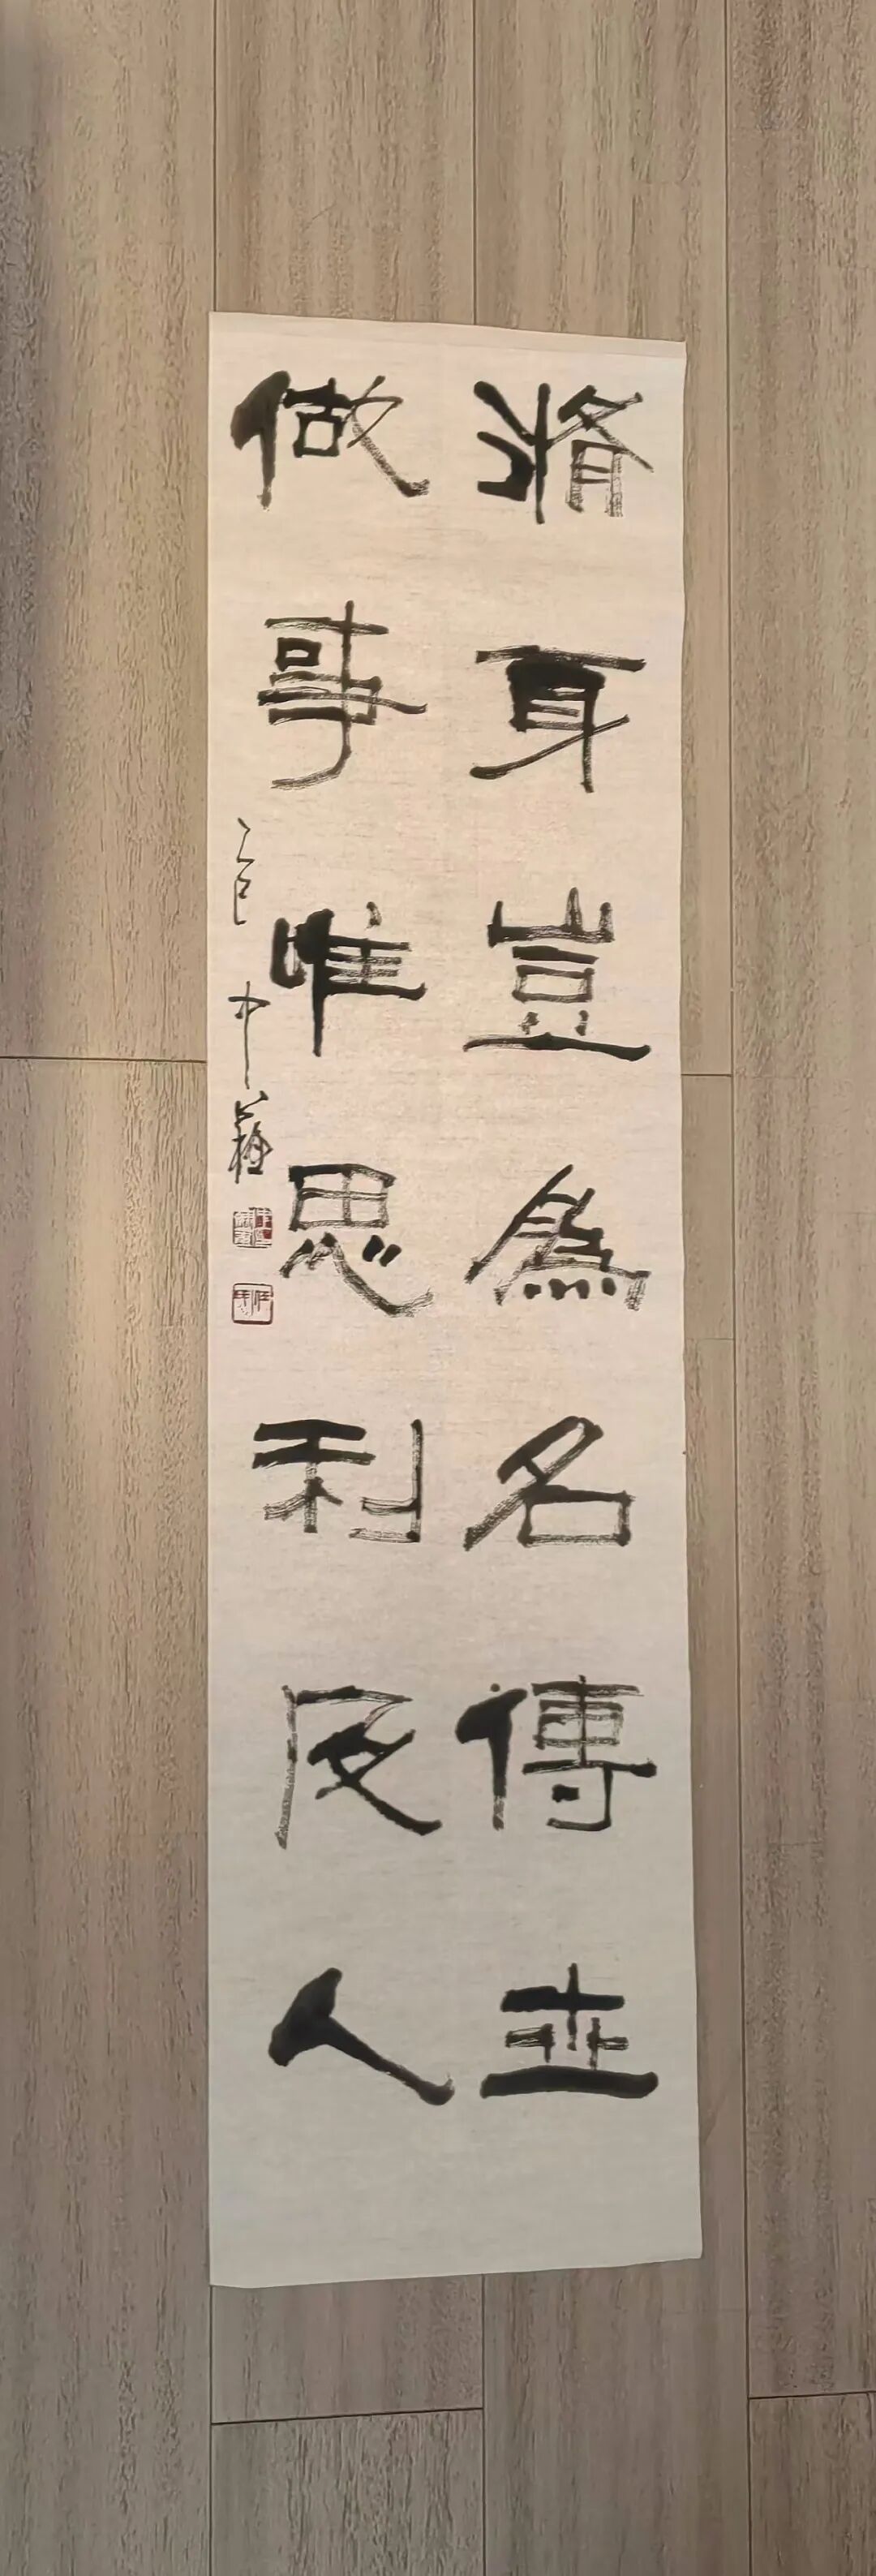 脩身豈為名傳世
做事唯思利及人
乙巳中